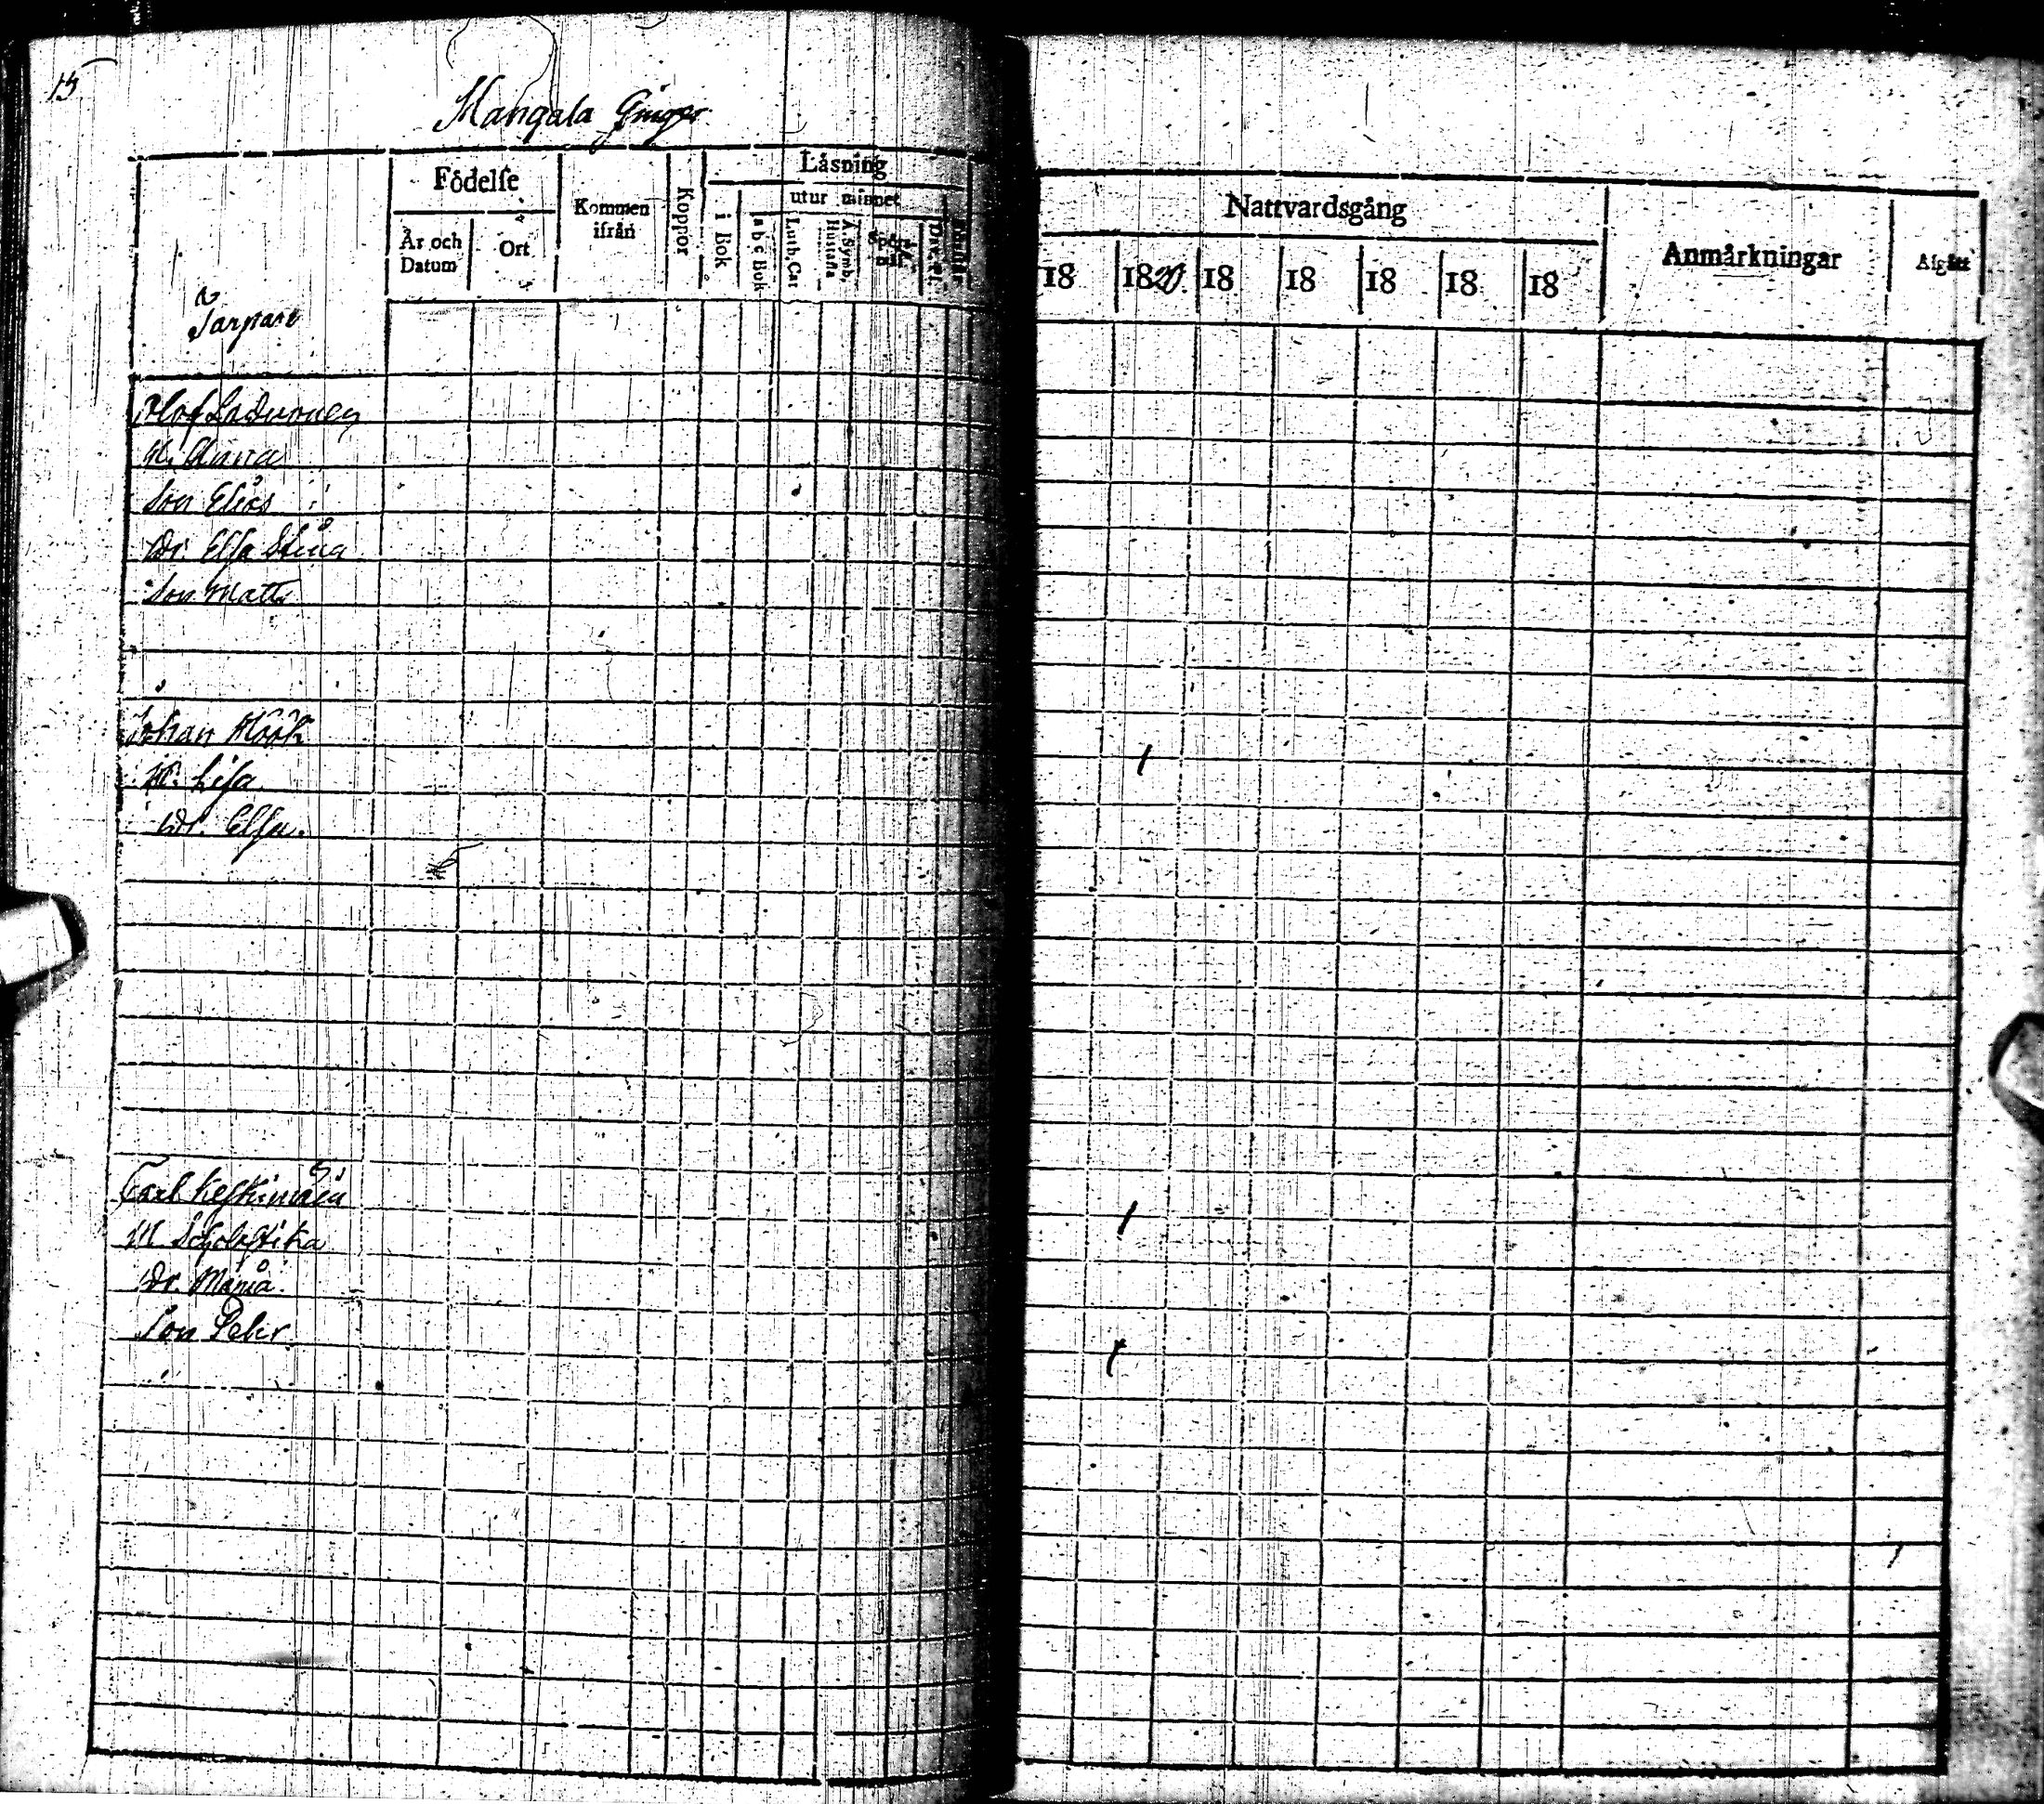 15
Mangala
Födelse
Läsning
utur minnet
Kommen ifrån
Koppor
i Bok
a b c Bok
Luth. Cat
A. Symb, Hustafla
Spörs mål
År och Datum
Ort
Nattvardsgång
Anmärkningar
Afgått
18 1820 18 18 18 18 18
Torpare
Olof
H. Anna
Son Elias
Dr. Elsa Stina
Son Matts
Johan Höök
H. Lisa
Dr. Elsa
Carl
H Scholastika
Dr. Maria
Son Pehr